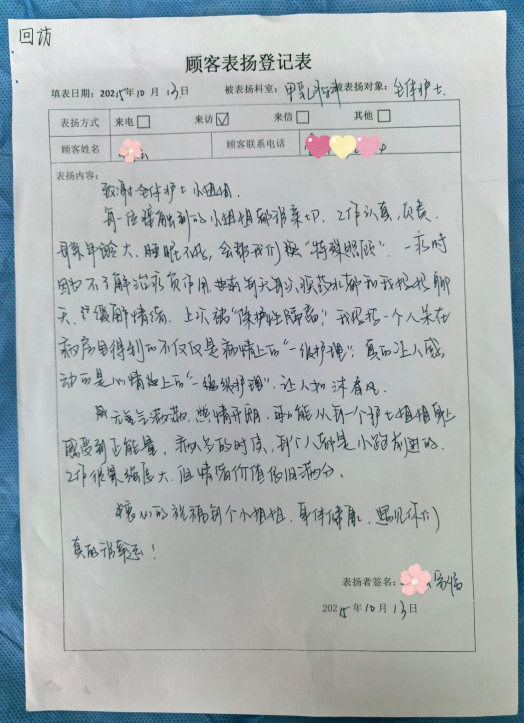 回访
顾客表扬登记表
填表日期：2025年10月13日 被表扬科室：甲乳外科 被表扬对象：全体护士
表扬方式 来电□ 来访☑ 来信□ 其他□
顾客姓名 顾客联系电话
表扬内容：
致谢全体护士小姐姐。
每一位接触到的小姐姐都很亲切、工作认真，负责。
母亲年龄大、睡眠不好，会帮我们按“特殊照顾”．一末时
因为不了解治疗负作用 每天每次 都和我妈妈聊
天，缓解情绪．上次被“保护性隔离”，我妈妈一个人呆在
病房里得到的不仅仅是病情上的“一级护理”，真的让人感
动的是心情上的“一级护理”，让人如沐春风．
元气满满，热情开朗，能从每一个护士姐姐身上
感受到正能量，病人多的时候，每个人都是小跑前进的．
工作强度大，但情绪价值依旧满分．
衷心的祝福每个小姐姐，身体健康，遇见你们
真的很幸运！
表扬者签名：
2025年10月13日